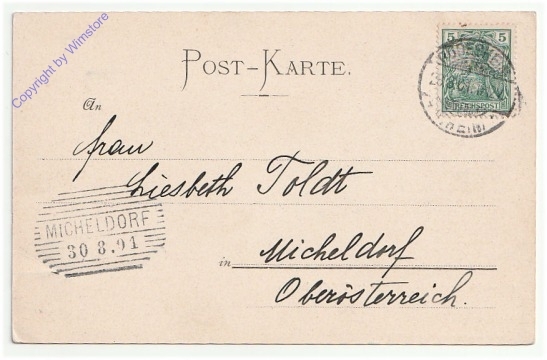 Copyright by Wimstore
POST-KARTE.
5 5
REICHSPOST
An
Frau
Liesbeth Toldt
MICHELDORF
30 8.91
in Micheldorf
Oberösterreich.